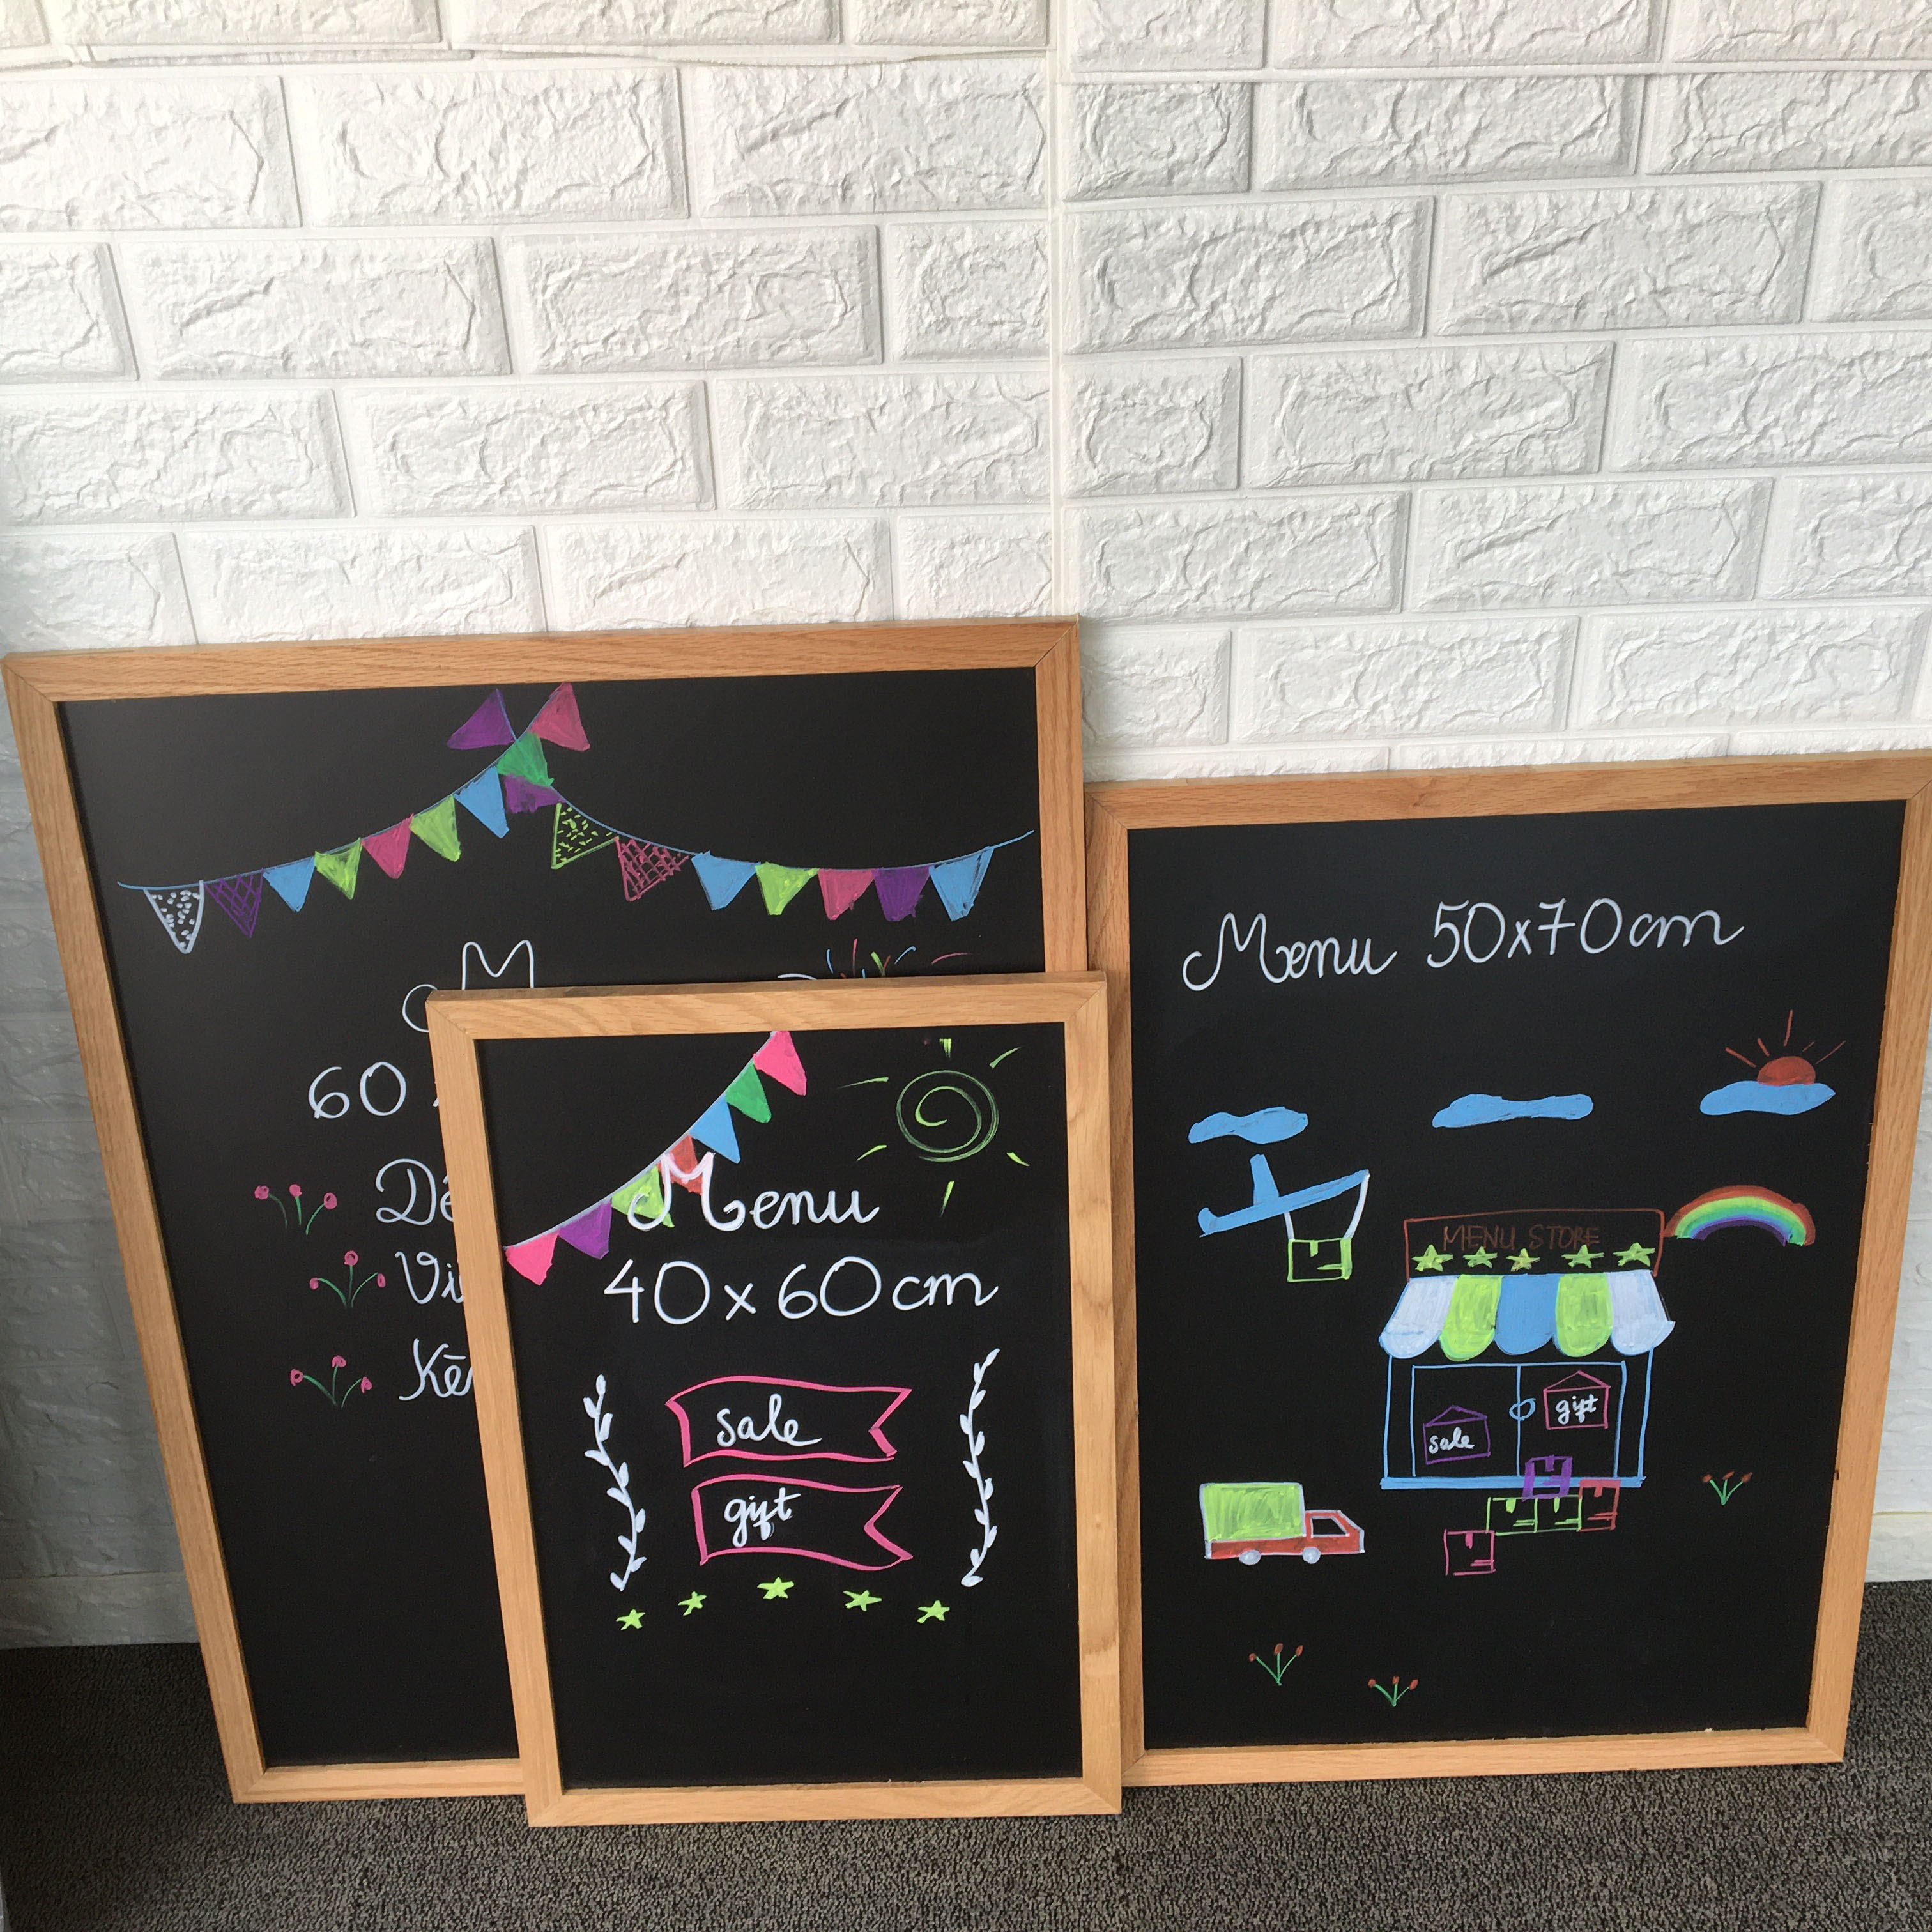 60
Menu
40 x 60 cm
sale
gift
Menu 50x70cm
MENU STORE
gift
sale